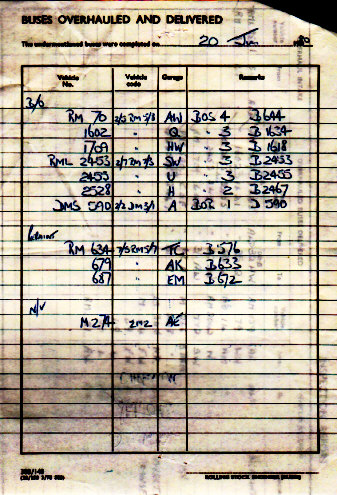 BUSES OVERHAULED AND DELIVERED
The undermentioned buses were completed on 20 Jan 1980
Vehicle No. Vehicle code Garage Remarks
B/O
RM 70 2/5 RM 5/8 AW BOS 4 B 644
1602 " Q " 3 B 1634
1709 " HW " 3 B 1618
RML 2453 2/7 RM 7/3 SW " 3 B 2433
2455 " U " 3 B2455
2528 " H " 2 B2467
DMS 590 2/2 DM 3/1 A BOB 1 D 590
RM 634 7/5 RM 5/7 TC B 576
679 " AK B633
687 " EM B 672
N/V
M 274 2M2 AE
ROLLING STOCK ENGINEER